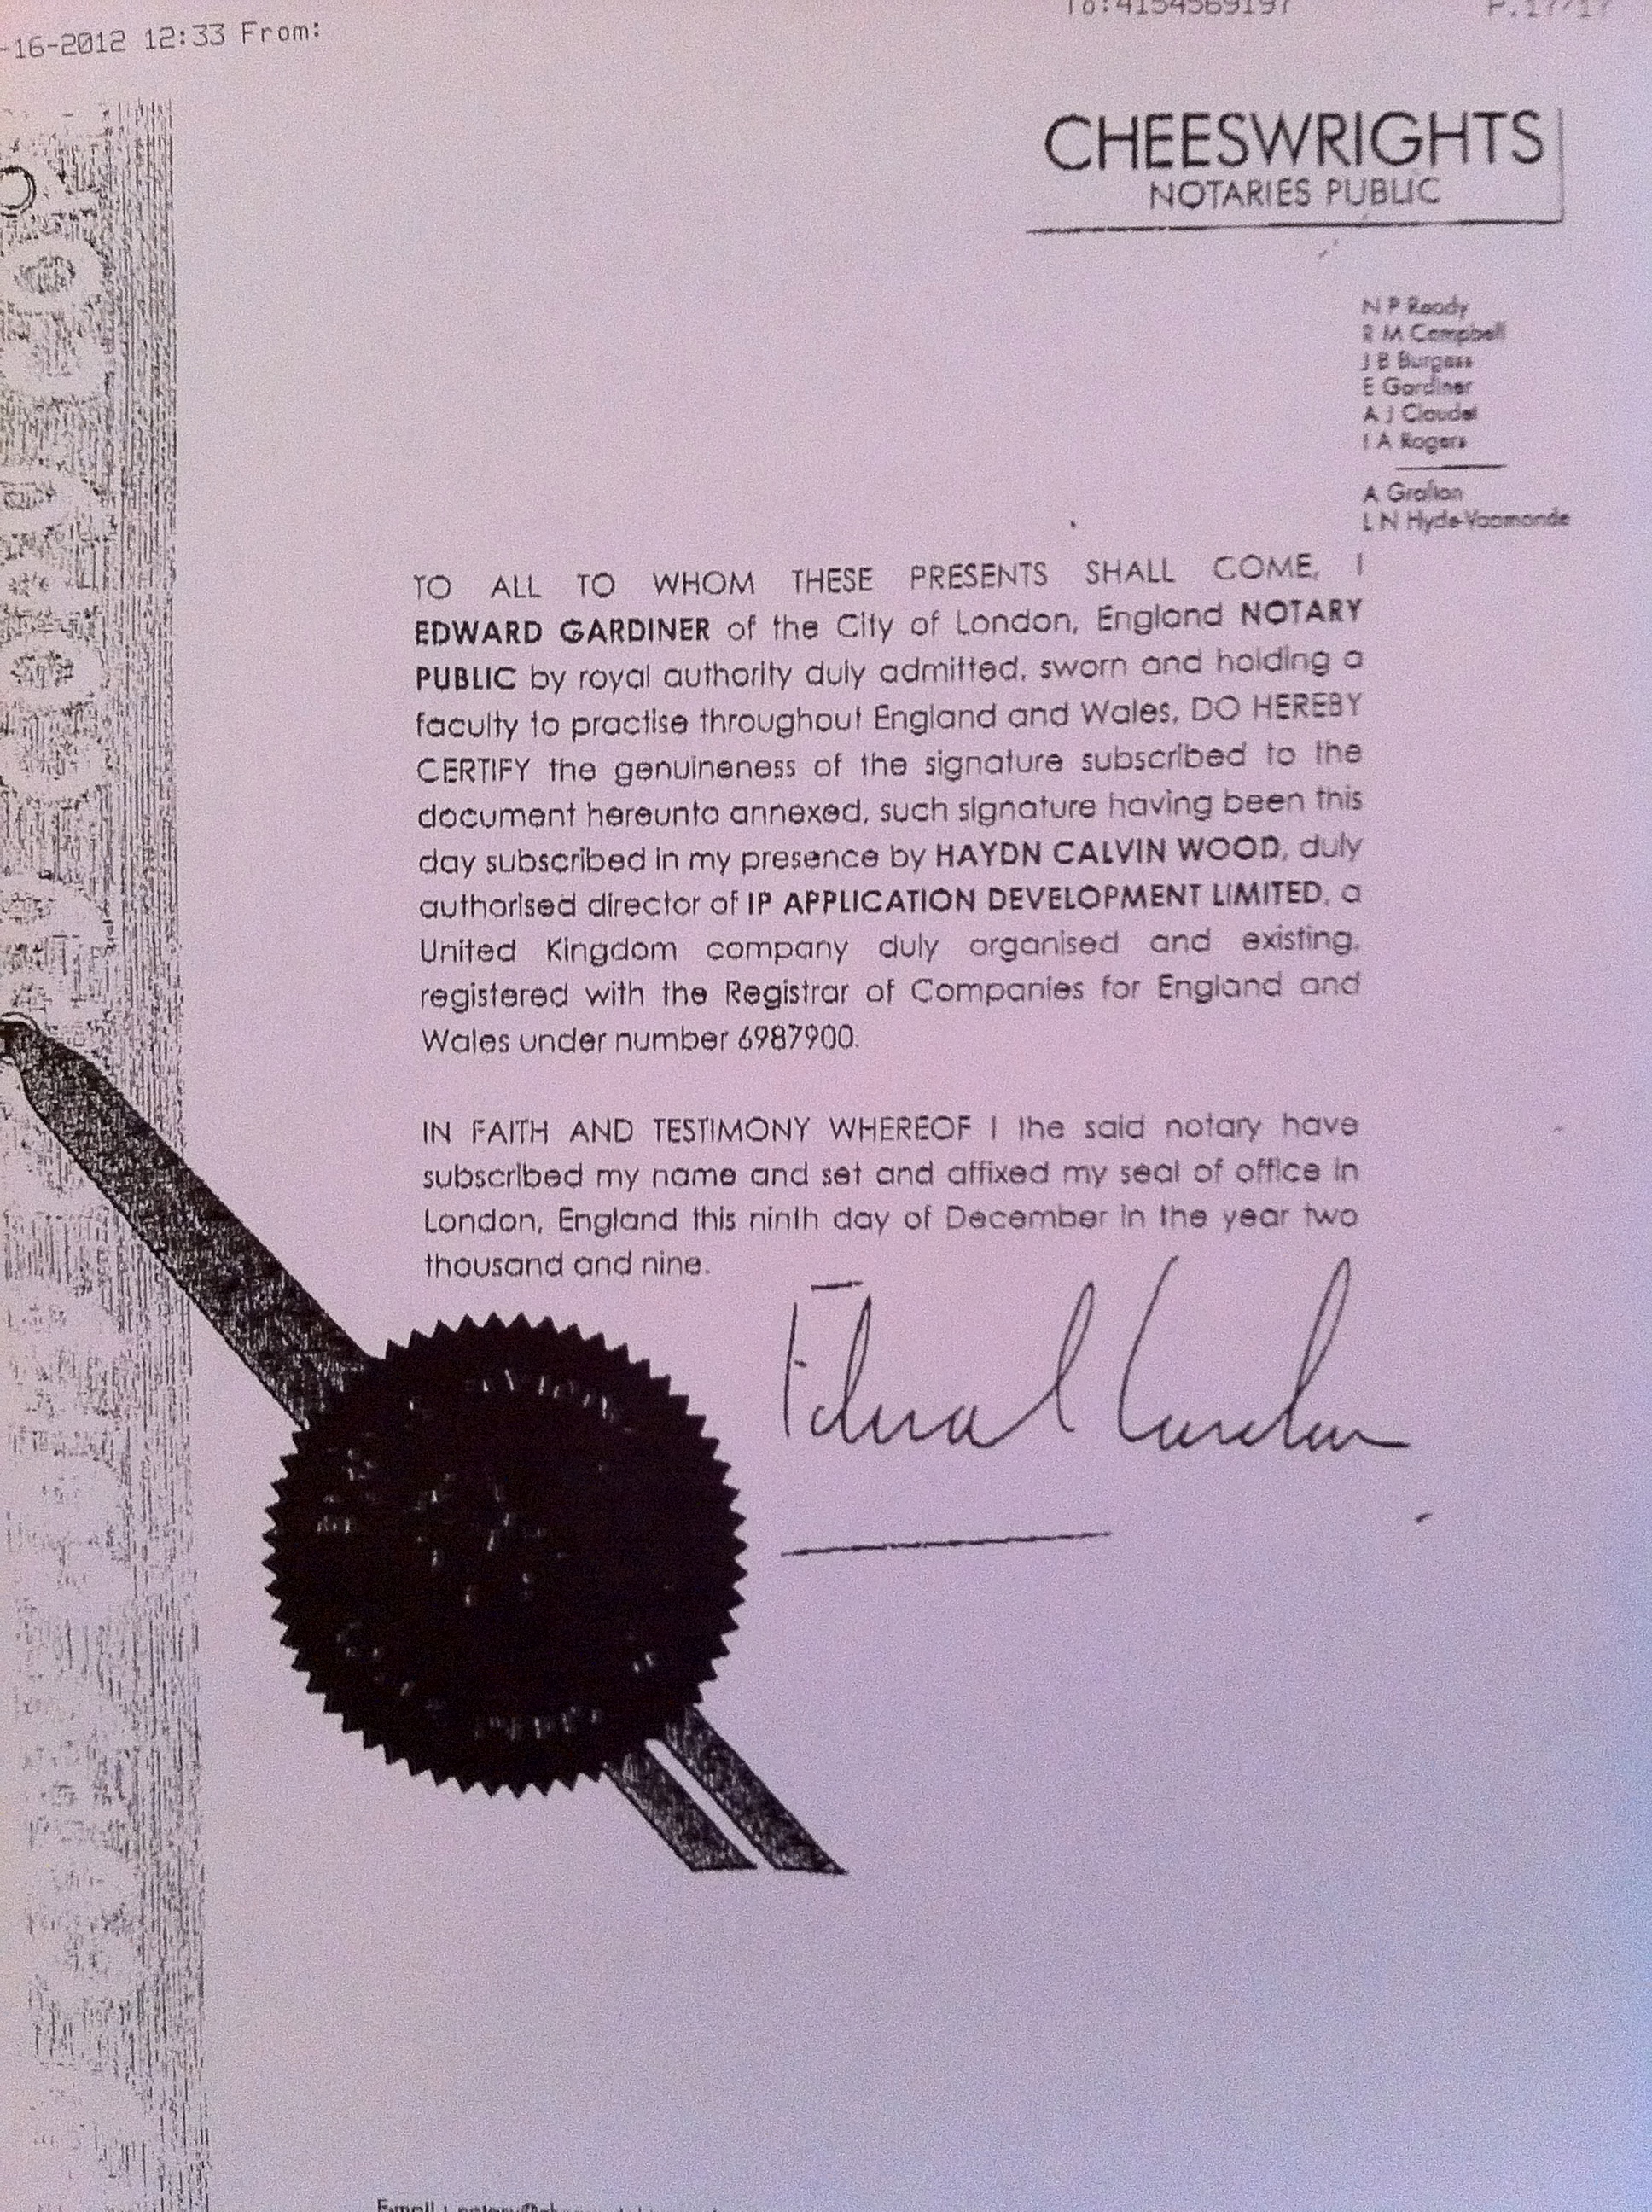 -16-2012 12:33 From:
To:4154569197 P.17/17
CHEESWRIGHTS
NOTARIES PUBLIC
N P Ready
R M Campbell
J B Burgess
E Gardiner
A J Claudet
I A Rogers
A Grafton
L N Hyde-Vaamonde
TO ALL TO WHOM THESE PRESENTS SHALL COME, I
EDWARD GARDINER of the City of London, England NOTARY
PUBLIC by royal authority duly admitted, sworn and holding a
faculty to practise throughout England and Wales, DO HEREBY
CERTIFY the genuineness of the signature subscribed to the
document hereunto annexed, such signature having been this
day subscribed in my presence by HAYDN CALVIN WOOD, duly
authorised director of IP APPLICATION DEVELOPMENT LIMITED, a
United Kingdom company duly organised and existing,
registered with the Registrar of Companies for England and
Wales under number 6987900.
IN FAITH AND TESTIMONY WHEREOF I the said notary have
subscribed my name and set and affixed my seal of office in
London, England this ninth day of December in the year two
thousand and nine.
Edward Gardiner